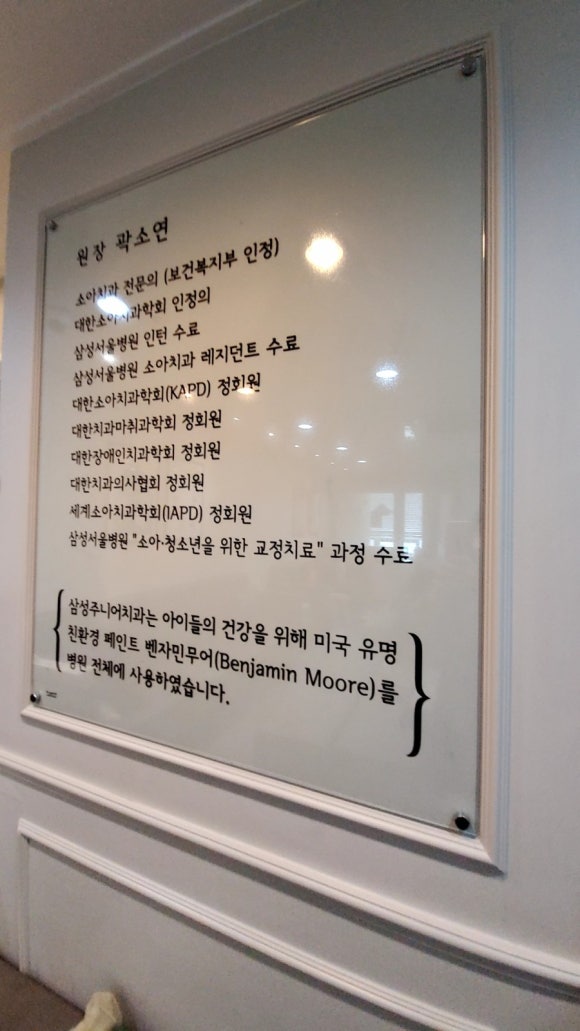 원장 곽소연
소아치과 전문의 (보건복지부 인정)
대한소아치과학회 인정의
삼성서울병원 인턴 수료
삼성서울병원 소아치과 레지던트 수료
대한소아치과학회(KAPD) 정회원
대한치과마취과학회 정회원
대한장애인치과학회 정회원
대한치과의사협회 정회원
세계소아치과학회(IAPD) 정회원
삼성서울병원 "소아·청소년을 위한 교정치료" 과정 수료
삼성주니어치과는 아이들의 건강을 위해 미국 유명
친환경 페인트 벤자민무어(Benjamin Moore)를
병원 전체에 사용하였습니다.